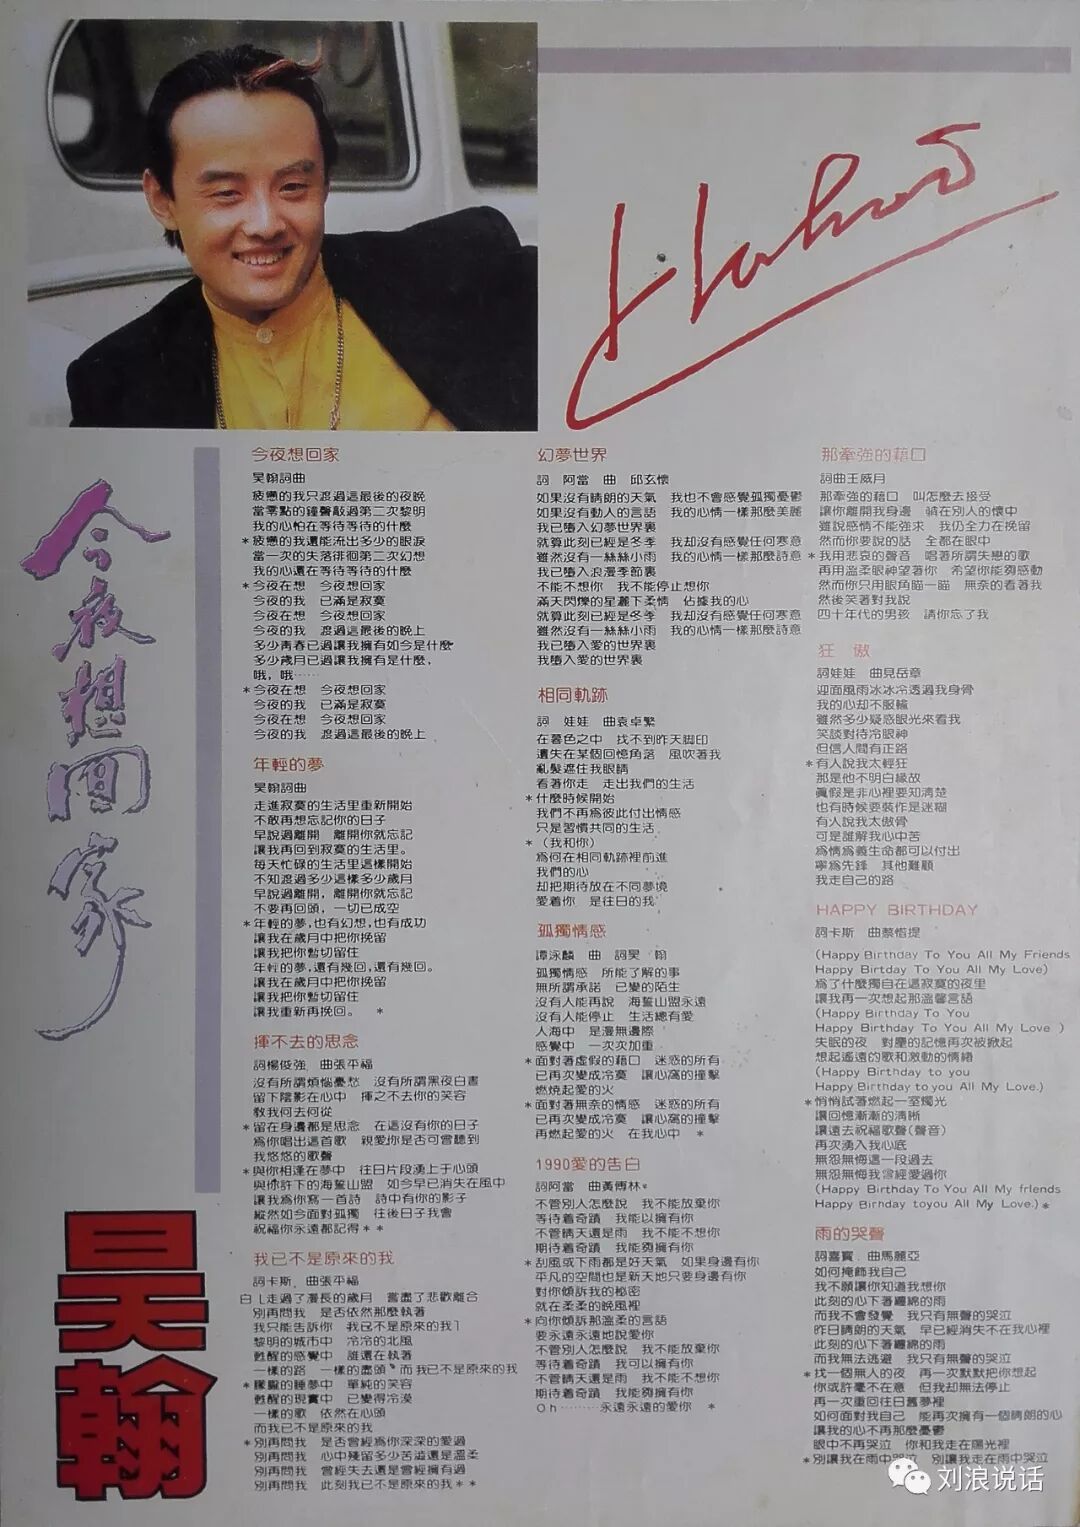 今夜想回家
吴翰
今夜想回家
吴翰詞曲
疲憊的我只渡過這最後的夜晚
當零點的鐘聲敲過第二次黎明
我的心怕在等待等待的什麼
*疲憊的我還能流出多少的眼淚
當一次的失落徘徊第二次幻想
我的心還在等待等待的什麼
*今夜在想 今夜想回家
今夜的我 已滿是寂寞
今夜在想 今夜想回家
今夜的我 渡過這最後的晚上
多少青春已過讓我擁有如今是什麼
多少歲月已過讓我擁有是什麼,
哦,哦……
*今夜在想 今夜想回家
今夜的我 已滿是寂寞
今夜在想 今夜想回家
今夜的我 渡過這最後的晚上
年輕的夢
吴翰詞曲
走進寂寞的生活里重新開始
不敢再想忘記你的日子
早說過離開 離開你就忘記
讓我再回到寂寞的生活里。
每天忙碌的生活里這樣開始
不知渡過多少這樣多少歲月
早說過離開,離開你就忘記
不要再回頭,一切已成空
*年輕的夢,也有幻想,也有成功
讓我在歲月中把你挽留
讓我把你暫切留住
年輕的夢,還有幾回,還有幾回。
讓我在歲月中把你挽留
讓我把你暫切留住
讓我重新再挽回。 *
揮不去的思念
詞楊俊強 曲張平福
沒有所謂煩惱憂愁 沒有所謂黑夜白晝
留下陰影在心中 揮之不去你的笑容
教我何去何從
*留在身邊都是思念 在這沒有你的日子
為你唱出這首歌 親愛你是否可曾聽到
我悠悠的歌聲
*與你相逢在夢中 往日片段湧上于心頭
與你許下的海誓山盟 如今早已消失在風中
讓我為你寫一首詩 詩中有你的影子
縱然如今面對孤獨 往後日子我會
祝福你永遠都記得**
我已不是原來的我
詞卡斯 曲張平福
白〔走過了漫長的歲月 嘗盡了悲歡離合
別再問我 是否依然那麼執著
我只能告訴你 我已不是原來的我〕
黎明的城市中 冷冷的北風
甦醒的感覺中 誰還在執著
一樣的路 一樣的盡頭 而我已不是原來的我
*朦朧的睡夢中 單純的笑容
甦醒的現實中 已變得冷漠
一樣的歌 依然在心頭
而我已不是原來的我
*別再問我 是否曾經為你深深的愛過
別再問我 心中殘留多少苦澀還是溫柔
別再問我 曾經失去還是曾經擁有過
別再問我 此刻我已不是原來的我**
幻夢世界
詞 阿當 曲 邱玄懷
如果沒有晴朗的天氣 我也不會感覺孤獨憂鬱
如果沒有動人的言語 我的心情一樣那麼美麗
我已墮入幻夢世界裏
就算此刻已經是冬季 我却沒有感覺任何寒意
雖然沒有一絲絲小雨 我的心情一樣那麼詩意
我已墮入浪漫季節裏
不能不想你 我不能停止想你
滿天閃爍的星灑下柔情 佔據我的心
就算此刻已經是冬季 我却沒有感覺任何寒意
雖然沒有一絲絲小雨 我的心情一樣那麼詩意
我已墮入愛的世界裏
我墮入愛的世界裏
相同軌跡
詞 娃娃 曲袁卓繁
在暮色之中 找不到昨天脚印
遺失在某個回憶角落 風吹著我
亂髮遮住我眼睛
看著你走 走出我們的生活
*什麼時候開始
我們不再為彼此付出情感
只是習慣共同的生活
*(我和你)
為何在相同軌跡裡前進
我們的心
却把期待放在不同夢境
愛着你 是往日的我
孤獨情感
譚泳麟 曲 詞吴 翰
孤獨情感 所能了解的事
無所謂承諾 已變的陌生
沒有人能再說 海誓山盟永遠
沒有人能停止 生活總有愛
人海中 是漫無邊際
感覺中 一次次加重
*面對著虛假的藉口 迷惑的所有
已再次變成冷莫 讓心窩的撞擊
燃燒起愛的火
*面對著無奈的情感 迷惑的所有
已再次變成冷莫 讓心窩的撞擊
再燃起愛的火 在我心中 *
1990愛的告白
詞阿當 曲黃傅林
不管別人怎麼說 我不能放棄你
等待着奇蹟 我能以擁有你
不管晴天還是雨 我不能不想你
期待着奇蹟 我能夠擁有你
*刮風或下雨都是好天氣 如果身邊有你
平凡的空間也是新天地只要身邊有你
對你傾訴我的秘密
就在柔柔的晚風裡
*向你傾訴那溫柔的言語
要永遠永遠地說愛你
不管別人怎麼說 我不能放棄你
等待着奇蹟 我可以擁有你
不管晴天還是雨 我不能不想你
期待着奇蹟 我能夠擁有你
Oh………永遠永遠的愛你 *
那牽強的藉口
詞曲王威月
那牽強的藉口 叫怎麼去接受
讓你離開我身邊 躺在別人的懷中
雖說感情不能強求 我仍全力在挽留
然而你要說的話 全都在眼中
*我用悲哀的聲音 唱著所謂失戀的歌
再用溫柔眼神望著你 希望你能夠感動
然而你只用眼角瞄一瞄 無奈的看著我
然後笑著對我說
四十年代的男孩 請你忘了我
狂 傲
詞娃娃 曲見岳章
迎面風雨冰冰冷透過我身骨
我的心却不服輸
雖然多少疑惑眼光來看我
笑談對待冷眼神
但信人間有正路
*有人說我太輕狂
那是他不明白緣故
真假是非心裡要知清楚
也有時候要裝作是迷糊
有人說我太傲骨
可是誰解我心中苦
為情為義生命都可以付出
寧為先鋒 其他難顧
我走自己的路
HAPPY BIRTHDAY
詞卡斯 曲蔡惜提
(Happy Birthday To You All My Friends
Happy Birtday To You All My Love)
為了什麼獨自在這寂寞的夜里
讓我再一次想起那溫馨言語
(Happy Birthday To You
Happy Birthday To You All My Love )
失眠的夜 對塵的記憶再次被掀起
想起遙遠的歌和激動的情緒
(Happy Birthday to you
Happy Birthday to you All My Love.)
*悄悄試著燃起一室燭光
讓回憶漸漸的清晰
讓遠去祝福歌聲(聲音)
再次湧入我心底
無怨無悔這一段過去
無怨無悔我曾經愛過你
(Happy Birthday To You All My friends
Happy Birthday toyou All My Love.)*
雨的哭聲
詞嘉實 曲馬麗亞
如何掩飾我自己
我不願讓你知道我想你
此刻的心下著纏綿的雨
而我不會發覺 我只有無聲的哭泣
昨日晴朗的天氣 早已經消失不在我心裡
此刻的心下著纏綿的雨
而我無法逃避 我只有無聲的哭泣
*找一個無人的夜 再一次默默把你想起
你或許毫不在意 但我却無法停止
再一次重回往日舊夢裡
如何面對我自己 能再次擁有一個晴朗的心
讓我的心不再那麼憂鬱
眼中不再哭泣 你和我走在陽光裡
*別讓我在雨中哭泣 別讓我走在雨中哭泣
刘浪说话